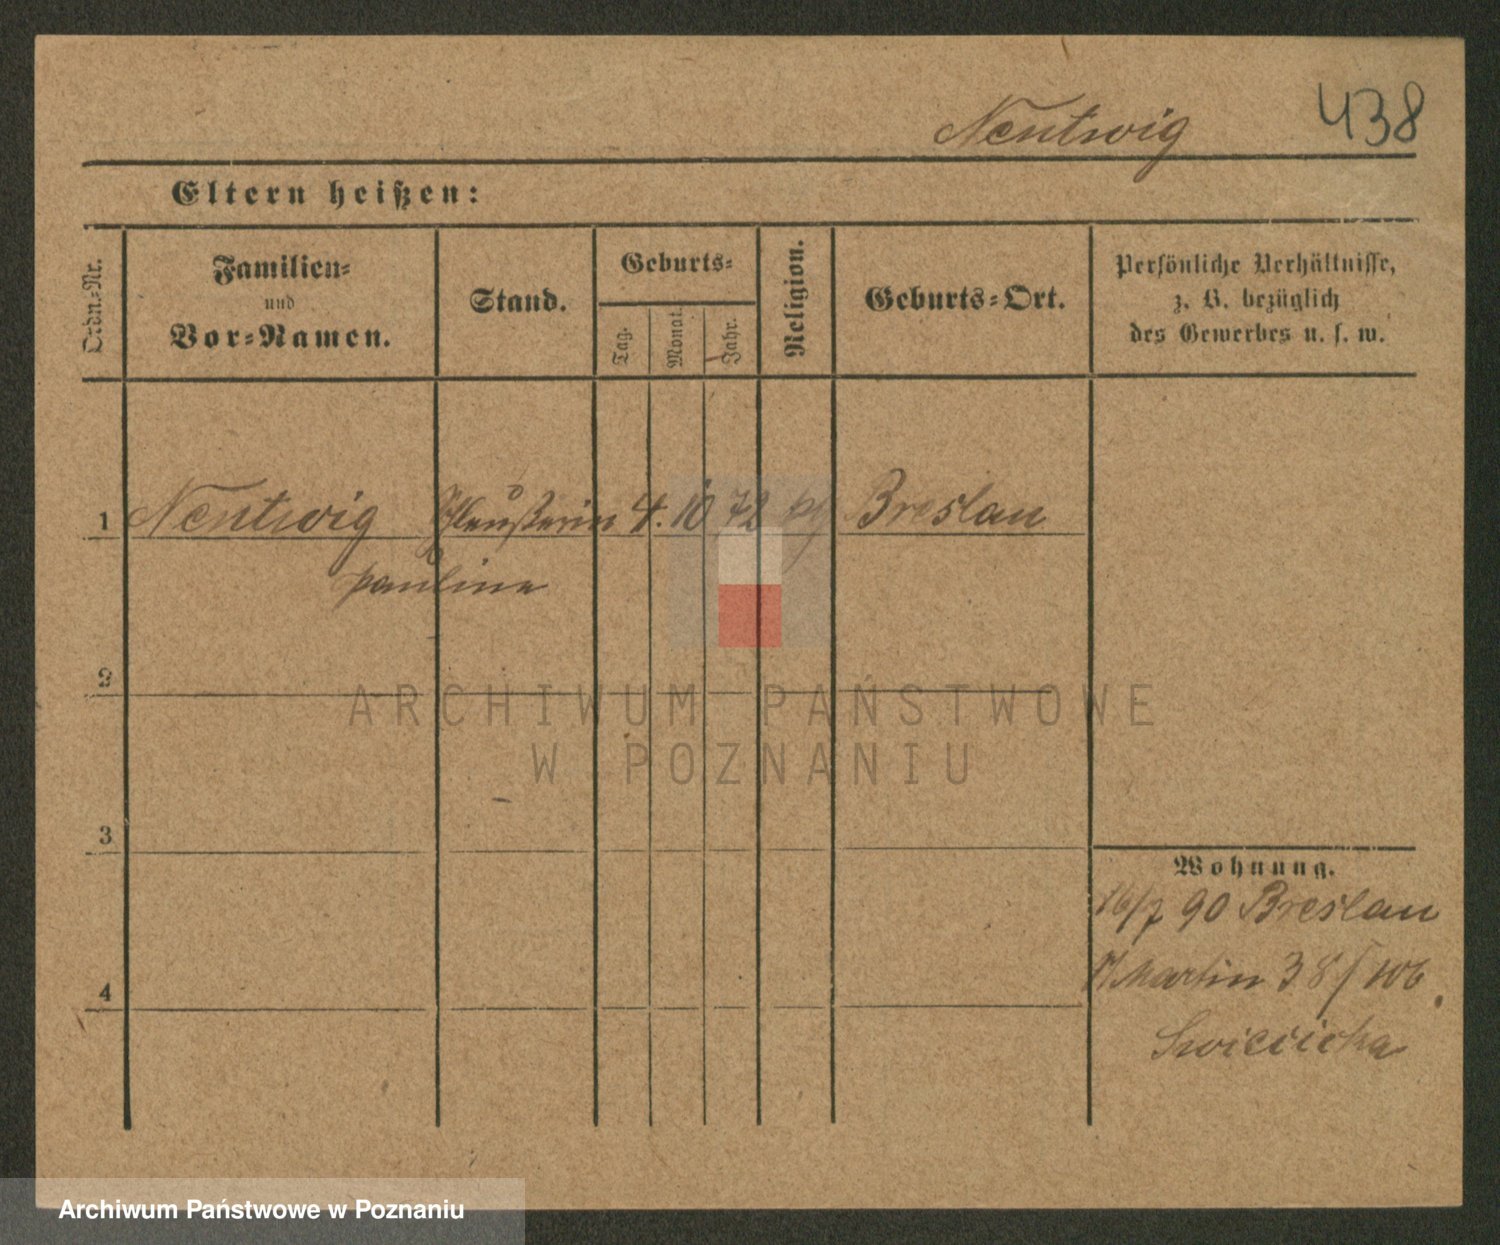 Neutwig 438
Eltern heißen:
Ordn.-Nr.
Familien-
und
Vor-Namen.
Stand.
Geburts-
Tag.
Monat.
Jahr.
Religion.
Geburts-Ort.
Persönliche Verhältnisse,
z. B. bezüglich
des Gewerbes u. s. w.
1 Neutwig 4. 10 72 Breslau
pauline
2
3
4
Wohnung.
16/7 90 Breslau
Martin 38/
ARCHIWUM PAŃSTWOWE
W POZNANIU
Archiwum Państwowe w Poznaniu